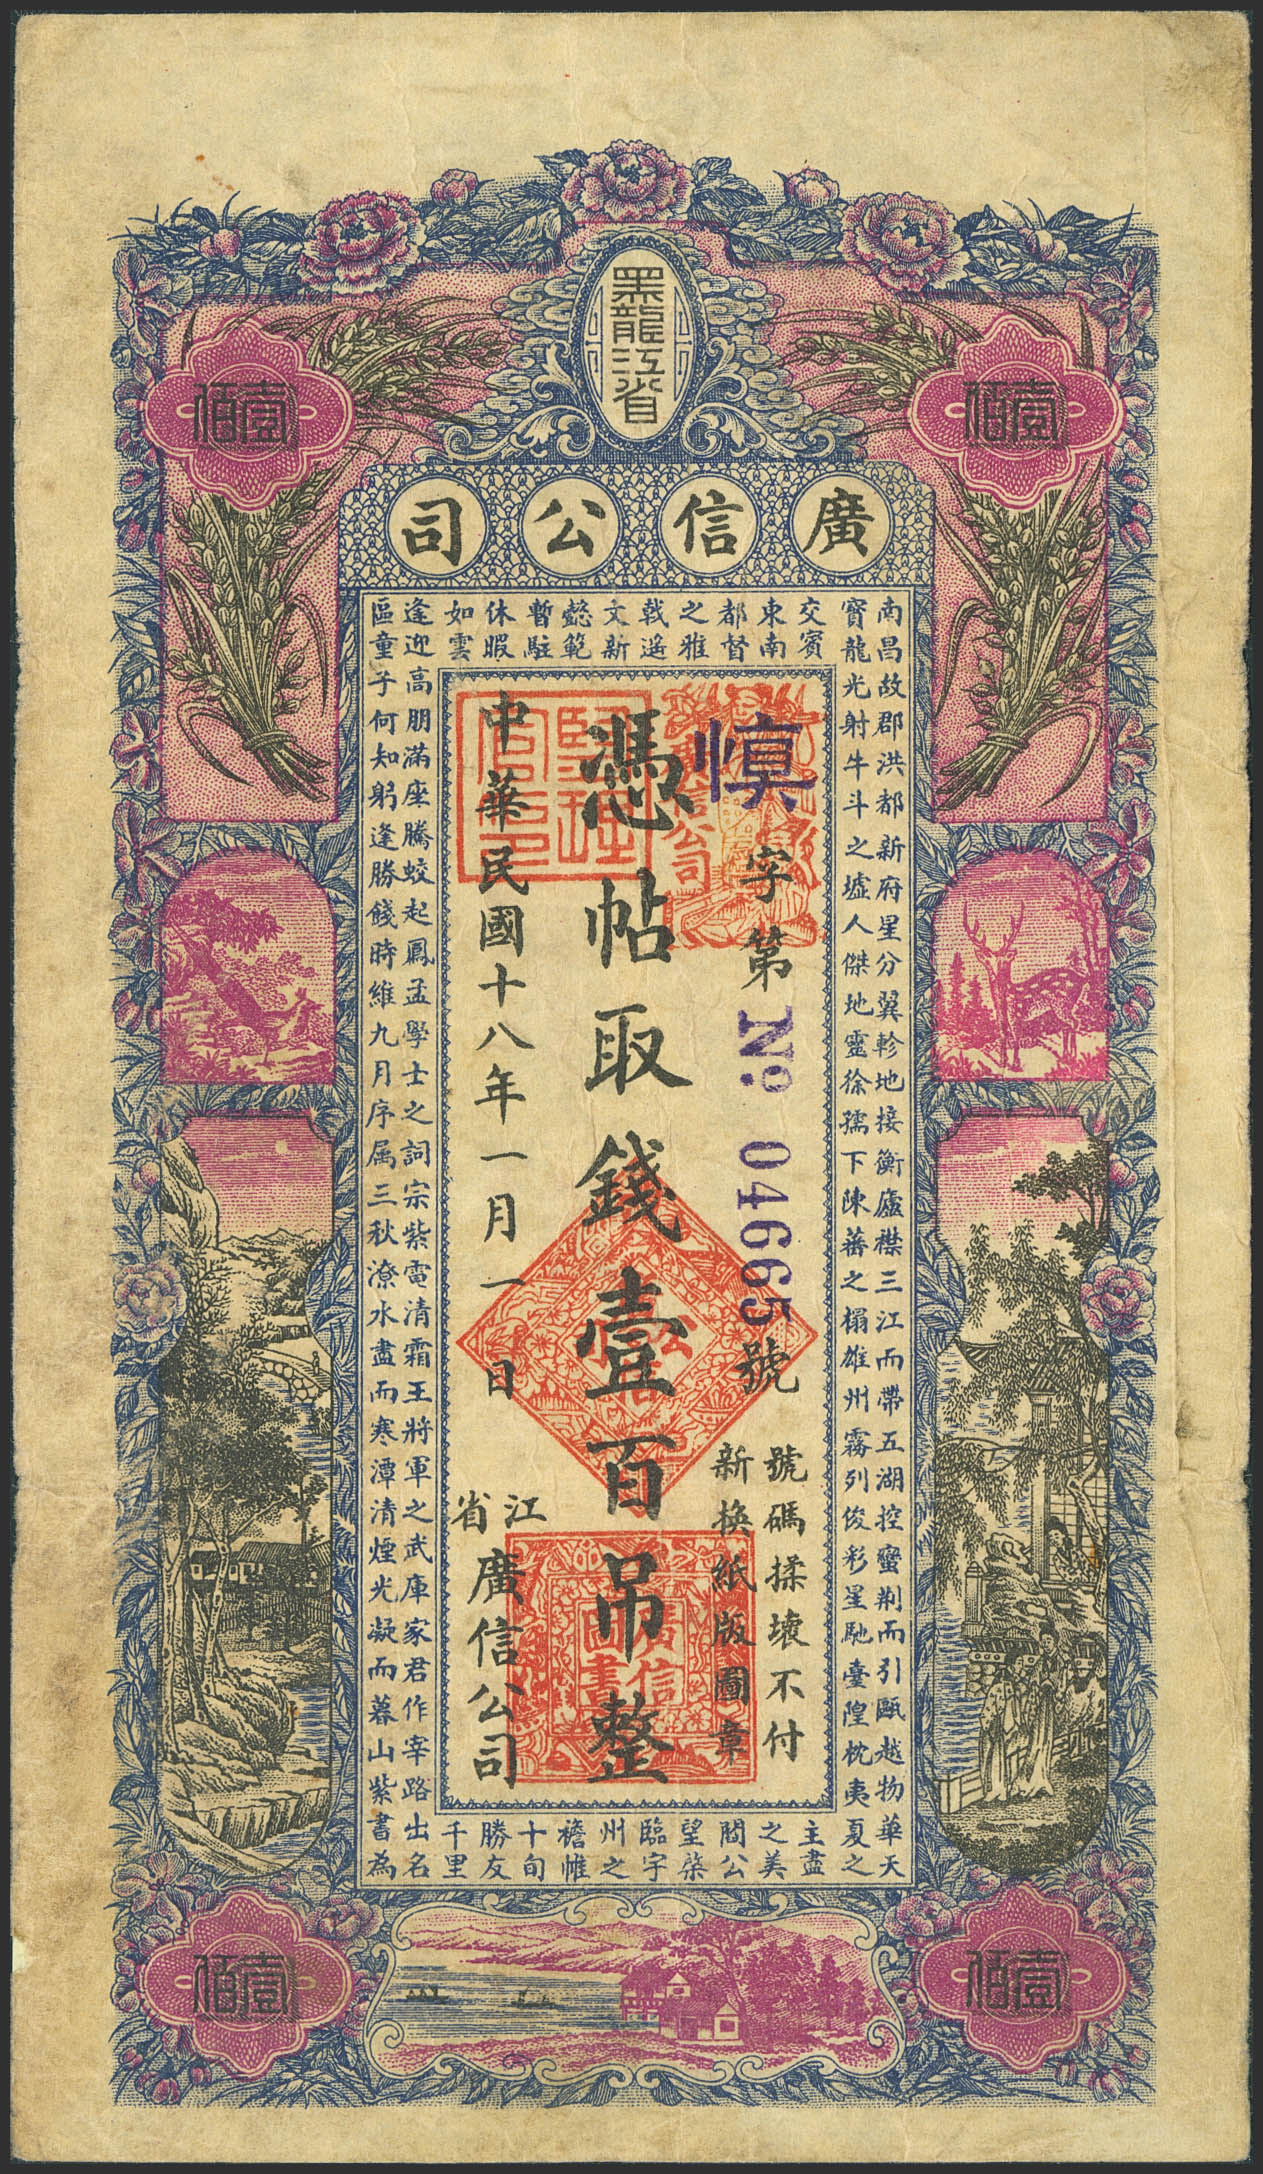 黑龍江省
壹佰
壹佰
廣信公司
南昌故郡洪都新府星分翼軫地接衡廬襟三江而帶五湖控蠻荊而引甌越物華天
寶龍光射牛斗之墟人傑地靈徐孺下陳蕃之榻雄州霧列俊彩星馳臺隍枕夷夏之
交賓
主盡
東南
之美
都督
閻公
之雅
望棨
戟遙
臨宇
文新
州之
懿範
襜帷
暫駐
十旬
休暇
勝友
如雲
千里
逢迎高朋滿座騰蛟起鳳孟學士之詞宗紫電清霜王將軍之武庫家君作宰路出名
區童子何知躬逢勝餞時維九月序屬三秋潦水盡而寒潭清煙光凝而暮山紫書為
慎字第№ 04665號
號碼揉壞不付
新換紙版圖章
憑帖取錢壹百吊整
中華民國十八年一月一日
江省
廣信公司
廣信公司
廣信圖書
壹佰
壹佰